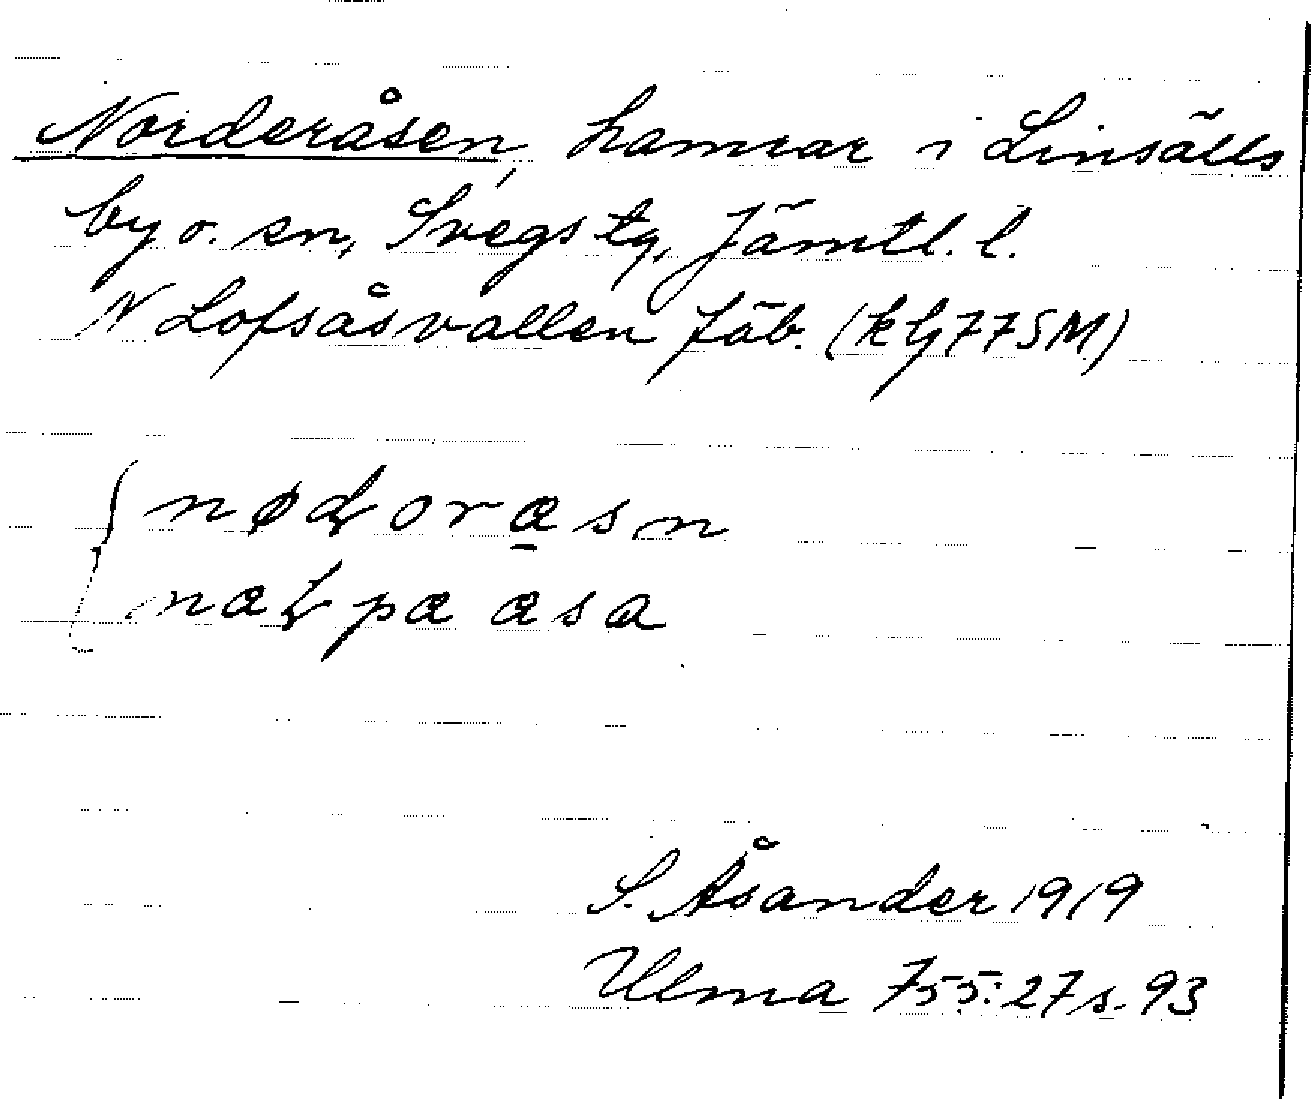 Norderåsen, hamrar i Linsälls
by o. sn, Svegs tg, Jämtl. l.
N Lofsåsvallen fäb. (
nødoræsn
næ pæ æsa
S. Åsander 1919
Ulma 755:27 s. 93